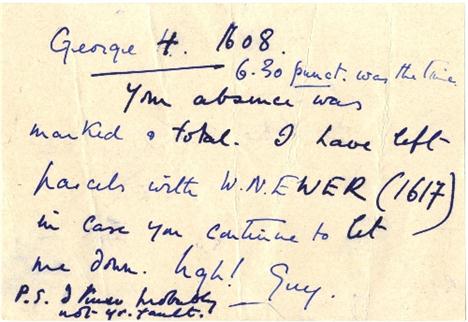 George 4. 1608.
6.30 punct. was the time
Your absence was
marked & total. I have left
parcels with W.N.EWER (1617)
in case you continue to let
me down. Ugh! Guy.
P.S. I know probably
not yr. fault.